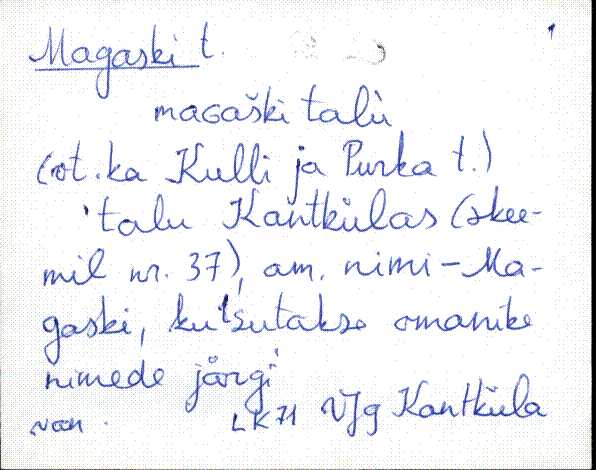 Magaski t.
magaški talù
(vt. ka Kulli ja Purka t.)
'talu Kantkülas (skee-
mil nr. 37), am. nimi - Ma-
gaski, kutsutakse omanike
nimede järgi
van. LK71 VJg Kantküla